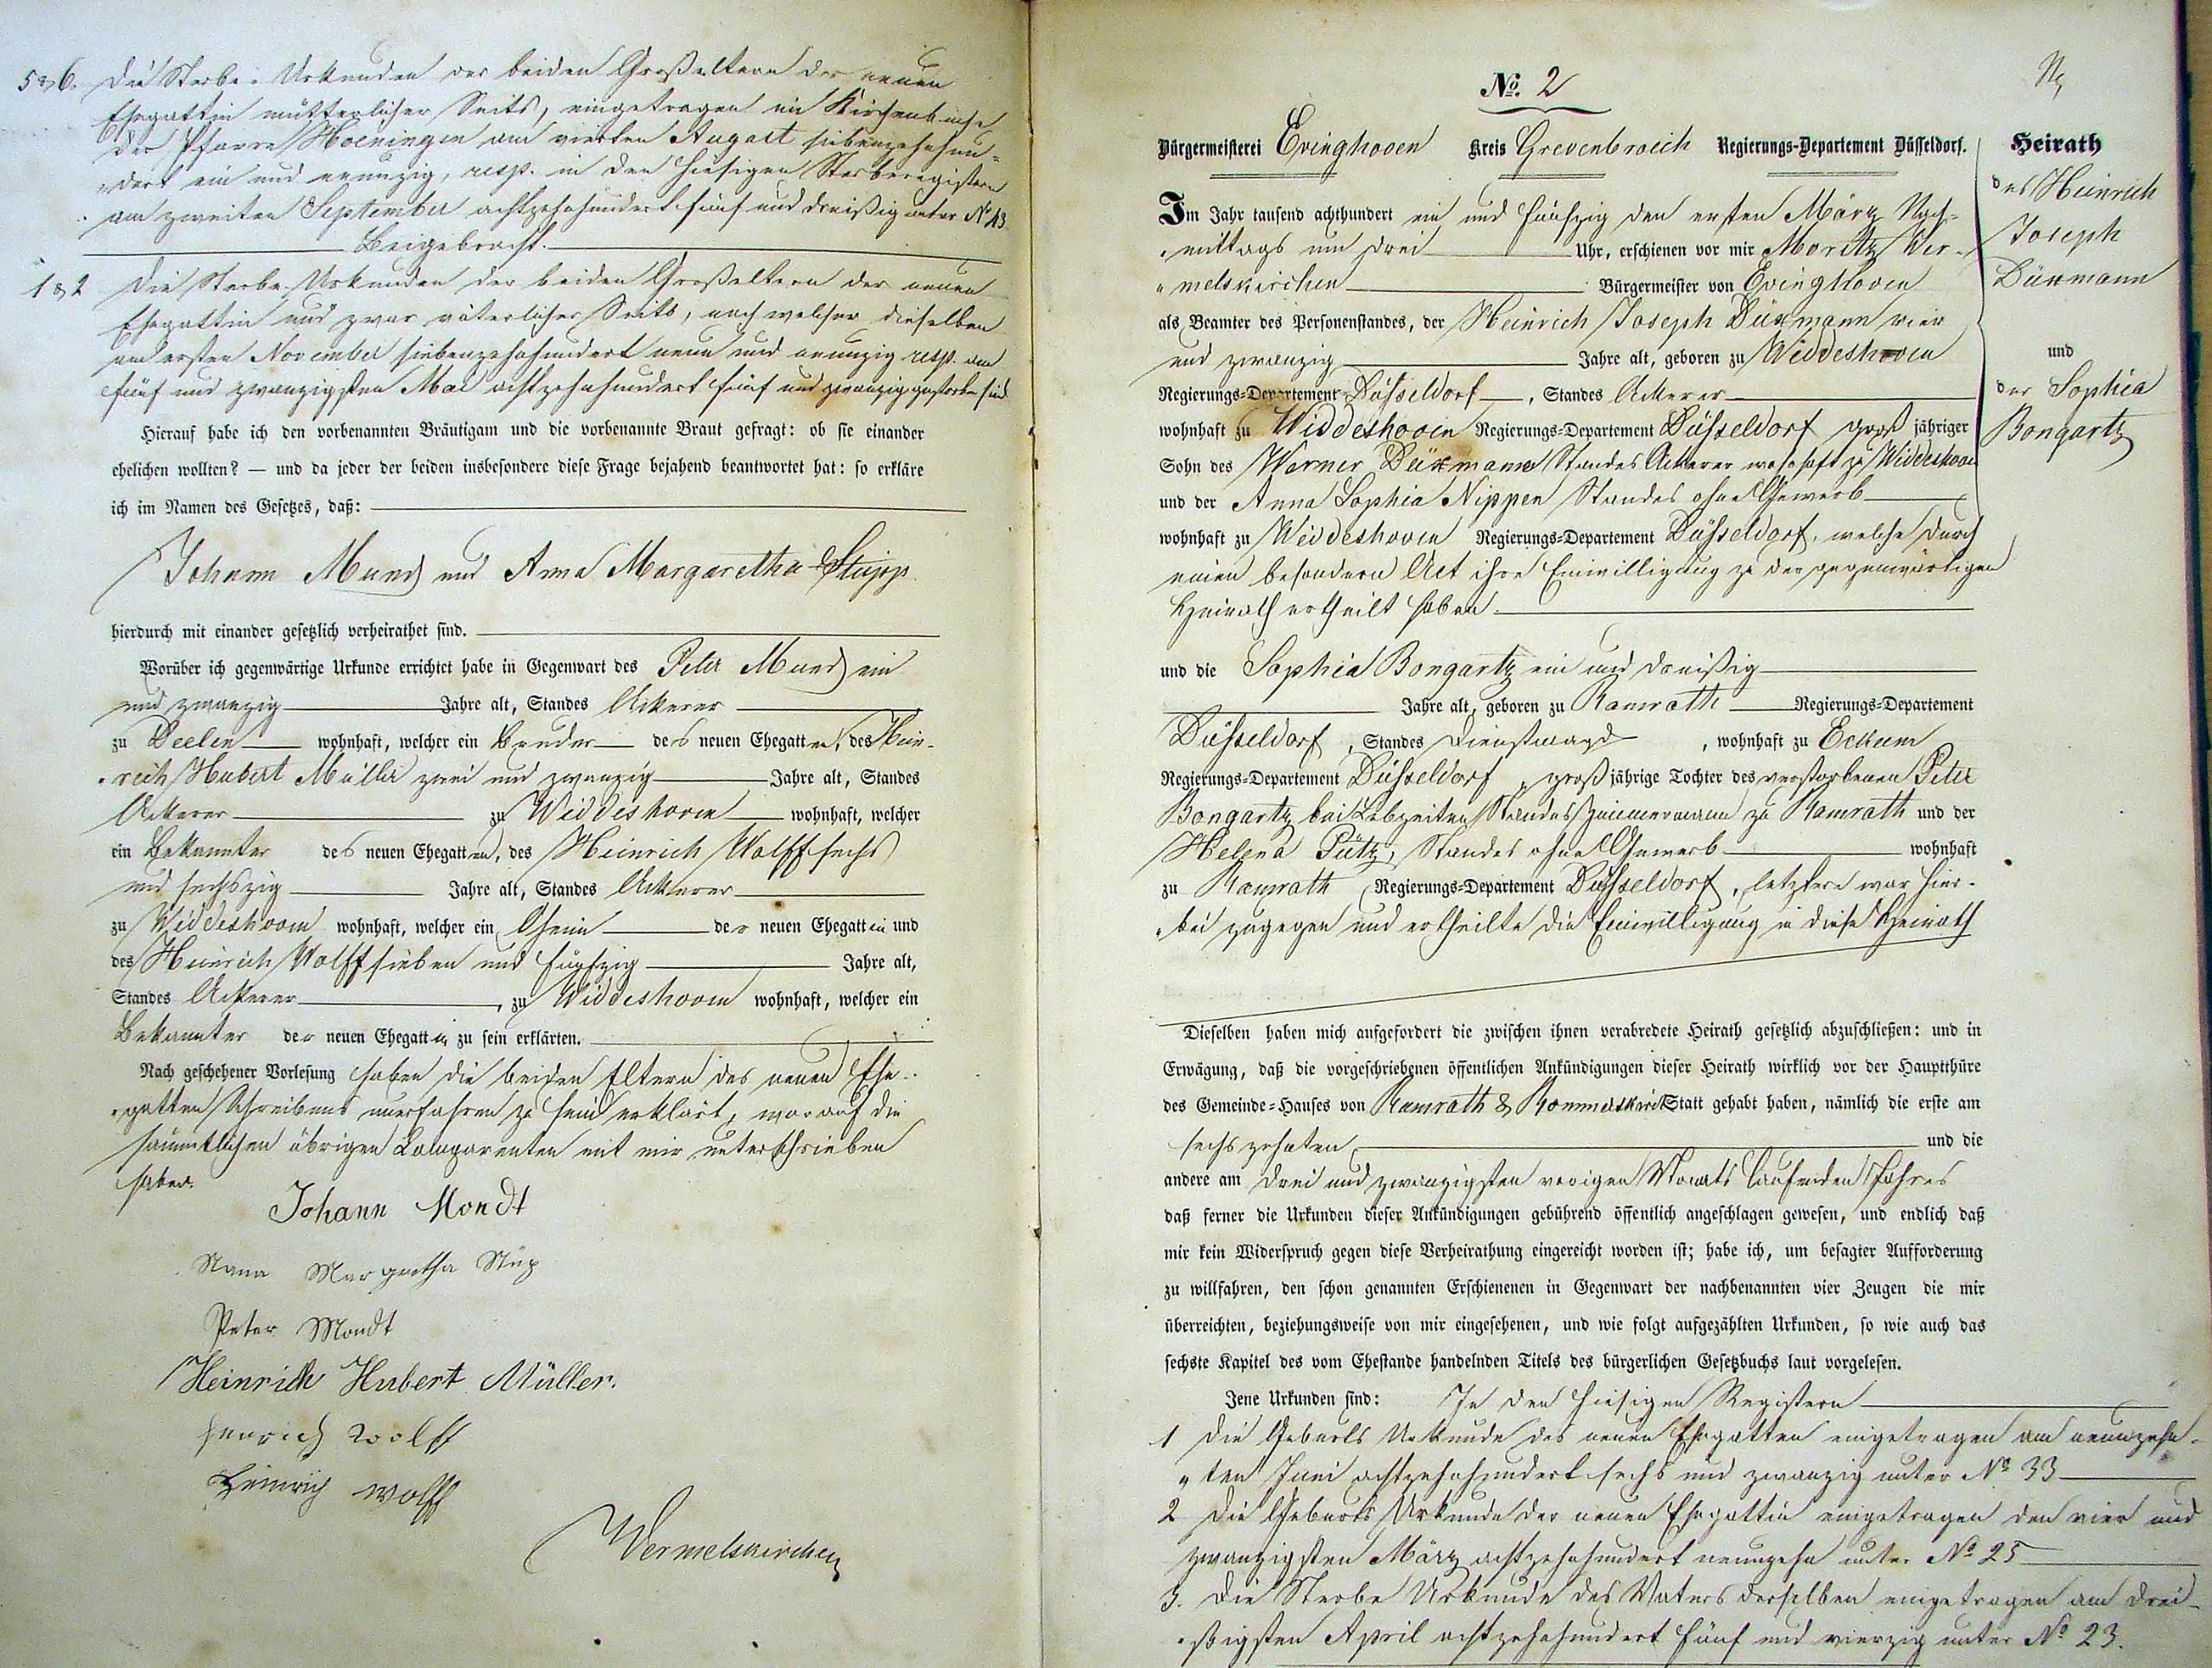 5 & 6. Die Sterbe-Urkunden der beiden Großeltern der neuen
Ehegattin mütterlicher Seits, eingetragen im Kirchenbuche
der Pfarre Hoeningen am vierten August siebenzehnhun-
dert ein und neunzig, resp. in den hiesigen Sterberegistern
am zweiten September achtzehnhundert fünf und dreißig unter No 43
Beigebracht.
1 & 2 Die Sterbe-Urkunden der beiden Großeltern der neuen
Ehegattin und zwar väterlicher Seits, nach welcher dieselben
am ersten November siebenzehnhundert neun und neunzig resp. am
fünf und zwanzigsten Mai achtzehnhundert fünf und zwanzig gestorben sind
Hierauf habe ich den vorbenannten Bräutigam und die vorbenannte Braut gefragt: ob sie einander
ehelichen wollten? — und da jeder der beiden insbesondere diese Frage bejahend beantwortet hat: so erkläre
ich im Namen des Gesetzes, daß:
Johann Mund und Anna Margaretha Stupp
hierdurch mit einander gesetzlich verheirathet sind.
Worüber ich gegenwärtige Urkunde errichtet habe in Gegenwart des Peter Mund ein
und zwanzig Jahre alt, Standes Ackerer
zu Deelen wohnhaft, welcher ein Bruder des neuen Ehegatten, des Hein-
rich Hubert Müller zwei und zwanzig Jahre alt, Standes
Ackerer zu Widdeshoven wohnhaft, welcher
ein Bekannter des neuen Ehegatten, des Heinrich Wolff sechs
und sechszig Jahre alt, Standes Ackerer
zu Widdeshoven wohnhaft, welcher ein Oheim der neuen Ehegattin und
des Heinrich Wolff sieben und fünfzig Jahre alt,
Standes Ackerer, zu Widdeshoven wohnhaft, welcher ein
Bekannter der neuen Ehegattin zu sein erklärten.
Nach geschehener Vorlesung haben die beiden Eltern des neuen Ehe-
gatten Schreibens unerfahren zu sein erklärt, worauf die
sämmtlichen übrigen Comparenten mit mir unterschrieben
haben.
Johann Mondt
Anna Margretha Stüp
Peter Mondt
Heinrich Hubert Müller.
Henrich Wolff
Heinrich Wolff
Wermelskirchen
No. 2
Bürgermeisterei Evinghoven Kreis Grevenbroich Regierungs-Departement Düsseldorf.
Heirath
des Heinrich
Joseph
Düxmann
und
der Sophia
Bongartz
Im Jahr tausend achthundert ein und fünfzig den ersten März Nach-
mittags um drei Uhr, erschienen vor mir Moritz Wer-
melskirchen Bürgermeister von Evinghoven
als Beamter des Personenstandes, der Heinrich Joseph Düxmann vier
und zwanzig Jahre alt, geboren zu Widdeshoven
Regierungs-Departement Düsseldorf, Standes Ackerer
wohnhaft zu Widdeshoven Regierungs-Departement Düsseldorf groß jähriger
Sohn des Werner Düxmann Standes Ackerer wohnhaft zu Widdeshoven
und der Anna Sophia Nippen Standes ohne Gewerb
wohnhaft zu Widdeshoven Regierungs-Departement Düsseldorf, welche durch
einen besondern Act ihre Einwilligung zu der gegenwärtigen
Heirath ertheilt haben
und die Sophia Bongartz ein und dreißig
Jahre alt, geboren zu Ramrath Regierungs-Departement
Düsseldorf, Standes Dienstmagd, wohnhaft zu Eckum
Regierungs-Departement Düsseldorf, großjährige Tochter des verstorbenen Peter
Bongartz bei Lebzeiten Standes Zimmermann zu Ramrath und der
Helena Pütz, Standes ohne Gewerb wohnhaft
zu Ramrath Regierungs-Departement Düsseldorf, letztere war hier-
bei zugegen und ertheilte die Einwilligung in diese Heirath
Dieselben haben mich aufgefordert die zwischen ihnen verabredete Heirath gesetzlich abzuschließen: und in
Erwägung, daß die vorgeschriebenen öffentlichen Ankündigungen dieser Heirath wirklich vor der Hauptthüre
des Gemeinde-Hauses von Ramrath & Rommerskirch Statt gehabt haben, nämlich die erste am
sechszehnten und die
andere am drei und zwanzigsten vorigen Monats laufenden Jahres
daß ferner die Urkunden dieser Ankündigungen gebührend öffentlich angeschlagen gewesen, und endlich daß
mir kein Widerspruch gegen diese Verheirathung eingereicht worden ist; habe ich, um besagter Aufforderung
zu willfahren, den schon genannten Erschienenen in Gegenwart der nachbenannten vier Zeugen die mir
überreichten, beziehungsweise von mir eingesehenen, und wie folgt aufgezählten Urkunden, so wie auch das
sechste Kapitel des vom Ehestande handelnden Titels des bürgerlichen Gesetzbuchs laut vorgelesen.
Jene Urkunden sind: In den hiesigen Registern
1 Die Geburts Urkunde des neuen Ehegatten eingetragen am neunzehn-
ten Juni achtzehnhundert sechs und zwanzig unter No 33
2 Die Geburts Urkunde der neuen Ehegattin eingetragen den vier und
zwanzigsten März achtzehnhundert neunzehn unter No 25
3. Die Sterbe Urkunde des Vaters derselben eingetragen am drei-
ßigsten April achtzehnhundert fünf und vierzig unter No 23.